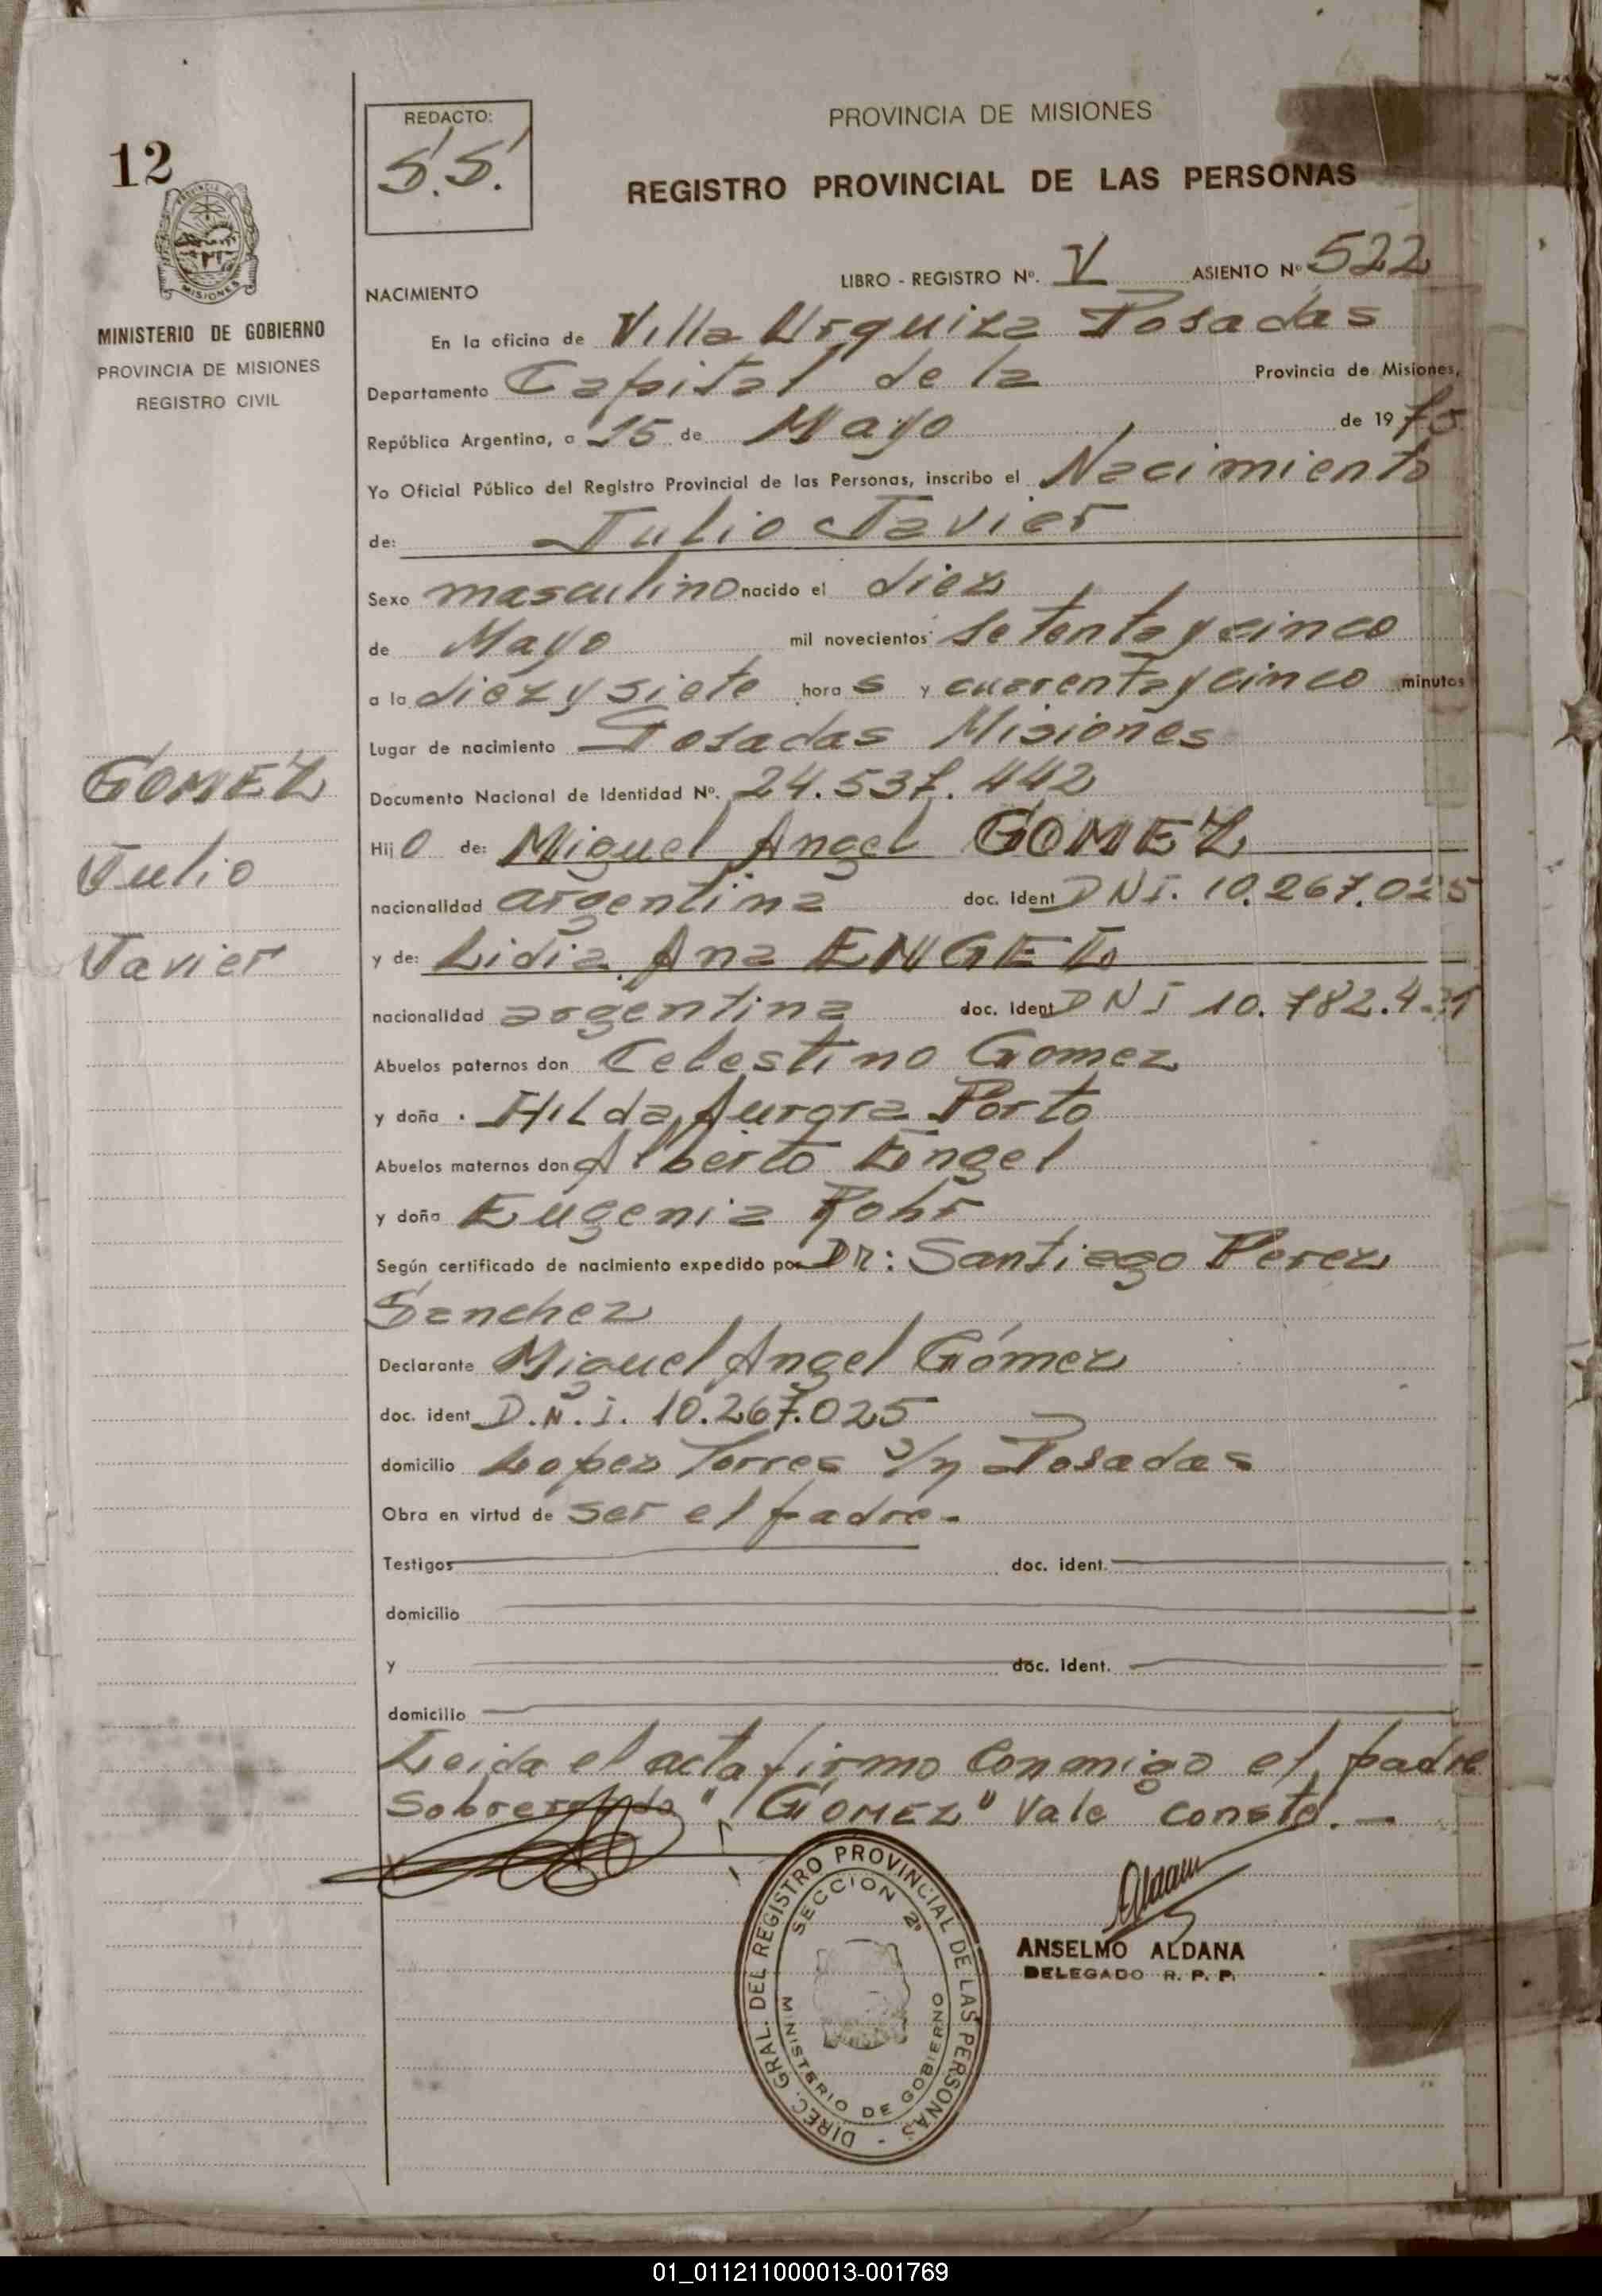 12
REDACTO:
S.S.
PROVINCIA DE MISIONES
REGISTRO PROVINCIAL DE LAS PERSONAS
MISIONES
MINISTERIO DE GOBIERNO
PROVINCIA DE MISIONES
REGISTRO CIVIL
LIBRO - REGISTRO Nº. V ASIENTO Nº 522
NACIMIENTO
En la oficina de Villa Urquiza Posadas
Departamento Capital de la Provincia de Misiones,
República Argentina, a 15 de Mayo de 1975
Yo Oficial Público del Registro Provincial de las Personas, inscribo el Nacimiento
de: Julio Javier
Sexo masculino nacido el diez
de Mayo mil novecientos setenta y cinco
a la diez y siete hora s y cuarenta y cinco minutos
Lugar de nacimiento Posadas Misiones
GOMEZ
Julio
Javier
Documento Nacional de Identidad Nº. 24.537.442
Hij o de: Miguel Angel GOMEZ
nacionalidad argentina doc. Ident DNI. 10.267.025
y de: Lidia Ana ENGEL
nacionalidad argentina doc. Ident DNI
Abuelos paternos don Celestino Gomez
y doña Hilda Aurora Porto
Abuelos maternos don Alberto Engel
y doña Eugenia Rohr
Según certificado de nacimiento expedido por Dr: Santiago Perez
Sanchez
Declarante Miguel Angel Gómez
doc. ident D.N.I. 10.267.025
domicilio Lopez Torres s/n Posadas
Obra en virtud de ser el padre.-
Testigos doc. ident.
domicilio
y doc. ident.
domicilio
Leida el acta firmo conmigo el padre
Sobreraspado "GOMEZ" Vale conste.-
DIREC. GRAL. DEL REGISTRO PROVINCIAL DE LAS PERSONAS -
SECCION 2º
MINISTERIO DE GOBIERNO
Aldana
ANSELMO ALDANA
DELEGADO R. P. P.
01_011211000013-001769